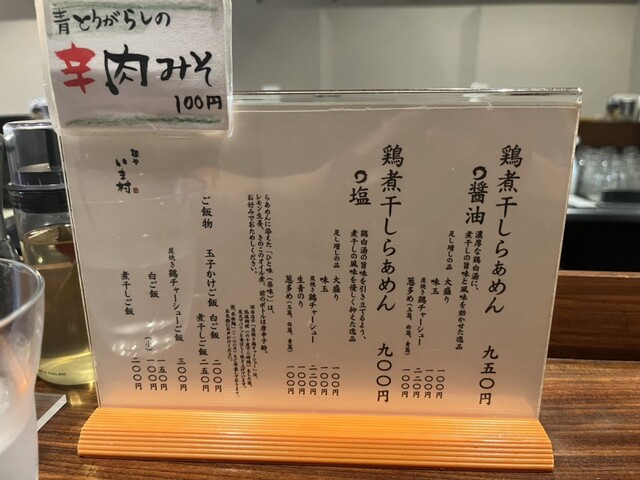 青とうがらしの
辛肉みそ
100円
鶏煮干しらぁめん 九五〇円
醤油
濃厚な鶏白湯に、
煮干しの旨味と風味を効かせた逸品
足し増しの品
大盛り 一〇〇円
味玉 一〇〇円
炭焼き鶏チャーシュー 二二〇円
葱多め（玉葱、白葱、青葱） 一〇〇円
鶏煮干しらぁめん 九〇〇円
塩
鶏白湯の旨味を引き立てるよう、
煮干しの風味を優しく抑えた逸品
足し増しの品
大盛り 一〇〇円
味玉 一〇〇円
炭焼き鶏チャーシュー 二二〇円
生青のり 一〇〇円
葱多め（玉葱、白葱、青葱） 一〇〇円
らぁめんに添えた「ひと味（薬味）」は、
レモン生姜、きのこのオイル煮、
お好みでおためしください。
ご飯物
玉子かけご飯 白ご飯 二〇〇円
煮干しご飯 二五〇円
炭焼き鶏チャーシューご飯 三〇〇円
白ご飯 一五〇円
（小） 一〇〇円
煮干しご飯 二〇〇円
いま村